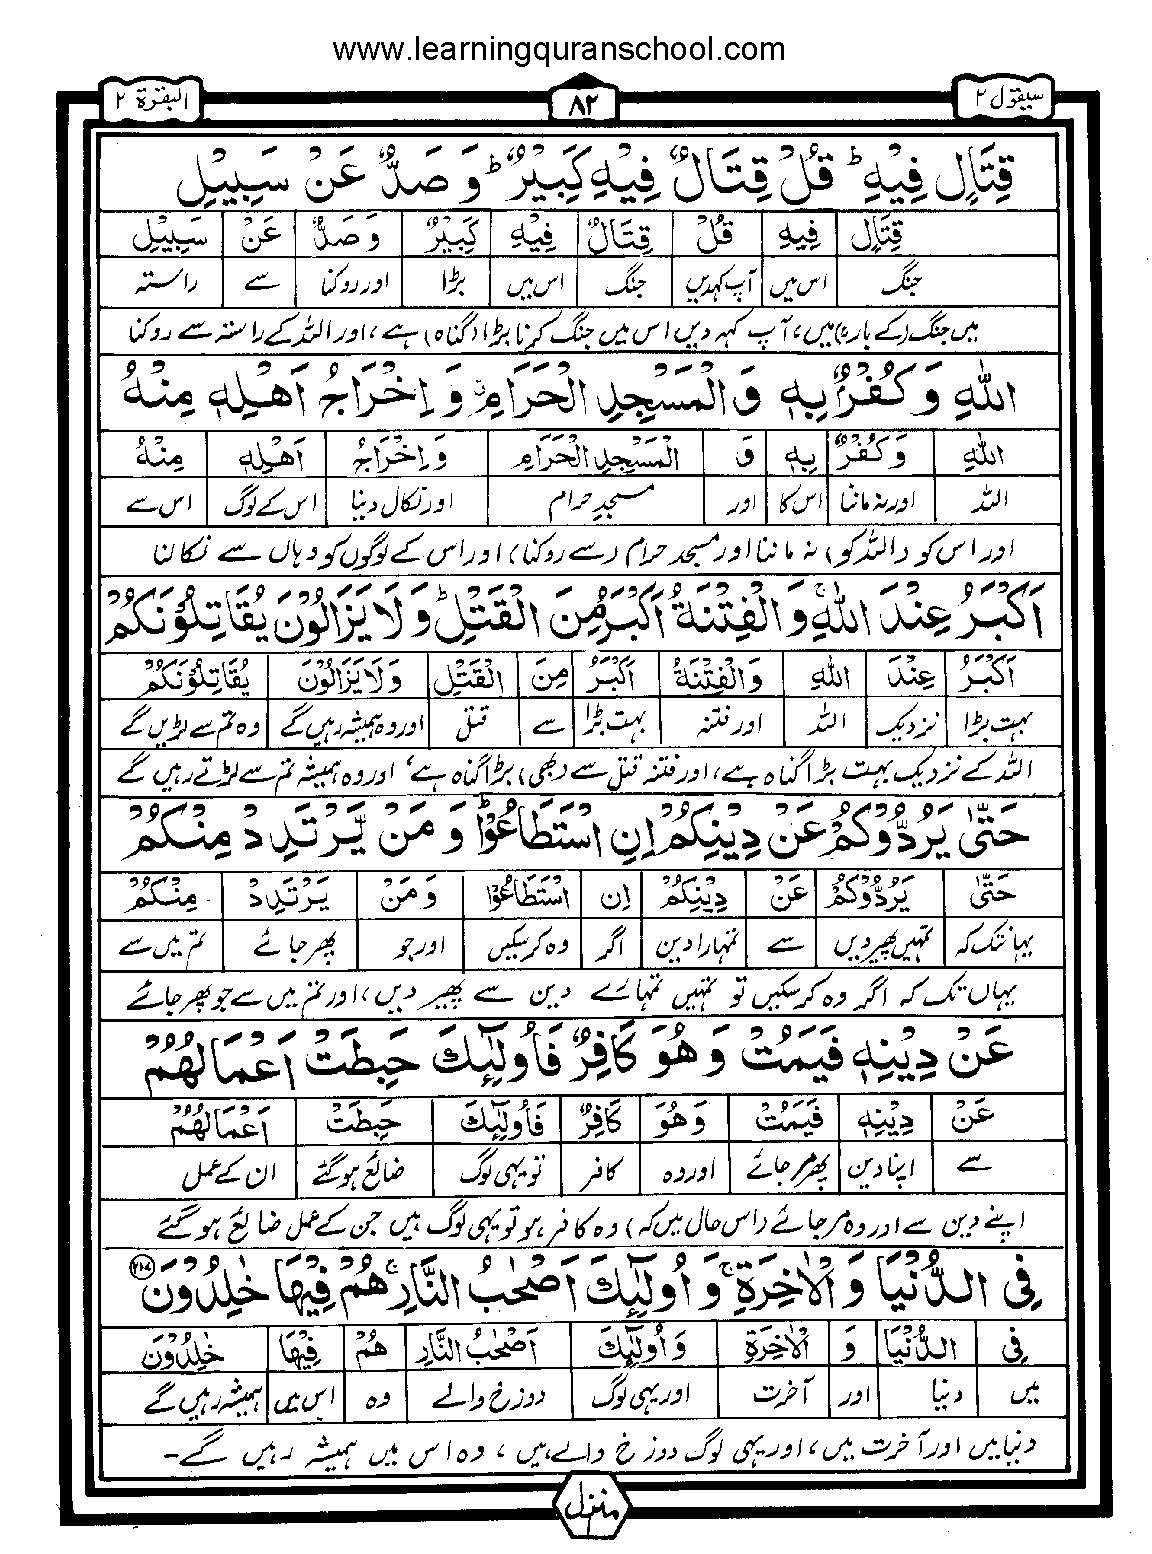 www.learningquranschool.com
سيقول ٢ ٨٢ البقرة ٢
قِتَالٍ فِيْهِ ؕ قُلْ قِتَالٌ فِيْهِ كَبِيْرٌ ؕ وَ صَدٌّ عَنْ سَبِيْلِ
قِتَالٍ فِيْهِ قُلْ قِتَالٌ فِيْهِ كَبِيْرٌ وَ صَدٌّ عَنْ سَبِيْلِ
جنگ اس میں آپ کہدیں جنگ اس میں بڑا اور روکنا سے راستہ
میں جنگ (کے بارے) میں، آپ کہہ دیں اس میں جنگ کرنا بڑا (گناہ) ہے، اور اللہ کے راستہ سے روکنا
اللهِ وَ كُفْرٌۢ بِهٖ وَ الْمَسْجِدِ الْحَرَامِ ۗ وَ اِخْرَاجُ اَهْلِهٖ مِنْهُ
اللهِ وَ كُفْرٌۢ بِهٖ وَ الْمَسْجِدِ الْحَرَامِ وَ اِخْرَاجُ اَهْلِهٖ مِنْهُ
اللہ اور نہ ماننا اس کا اور مسجد حرام اور نکال دینا اس کے لوگ اس سے
اور اس کو (اللہ کو) نہ ماننا اور مسجد حرام (سے روکنا) اور اس کے لوگوں کو وہاں سے نکالنا
اَكْبَرُ عِنْدَ اللهِ ۚ وَ الْفِتْنَةُ اَكْبَرُ مِنَ الْقَتْلِ ؕ وَ لَا يَزَالُوْنَ يُقَاتِلُوْنَكُمْ
اَكْبَرُ عِنْدَ اللهِ وَ الْفِتْنَةُ اَكْبَرُ مِنَ الْقَتْلِ وَ لَا يَزَالُوْنَ يُقَاتِلُوْنَكُمْ
بہت بڑا نزدیک اللہ اور فتنہ بہت بڑا سے قتل اور وہ ہمیشہ رہیں گے وہ تم سے لڑیں گے
اللہ کے نزدیک بہت بڑا گناہ ہے، اور فتنہ قتل سے (بھی) بڑا گناہ ہے، اور وہ ہمیشہ تم سے لڑتے رہیں گے
حَتّٰى يَرُدُّوْكُمْ عَنْ دِيْنِكُمْ اِنِ اسْتَطَاعُوْا ؕ وَ مَنْ يَّرْتَدِدْ مِنْكُمْ
حَتّٰى يَرُدُّوْكُمْ عَنْ دِيْنِكُمْ اِنِ اسْتَطَاعُوْا وَ مَنْ يَرْتَدِدْ مِنْكُمْ
یہانتک کہ تمہیں پھیر دیں سے تمہارا دین اگر وہ کر سکیں اور جو پھر جائے تم میں سے
یہاں تک کہ اگر وہ کر سکیں تو تمہیں تمہارے دین سے پھیر دیں، اور تم میں سے جو پھر جائے
عَنْ دِيْنِهٖ فَيَمُتْ وَ هُوَ كَافِرٌ فَاُولٰٓئِكَ حَبِطَتْ اَعْمَالُهُمْ
عَنْ دِيْنِهٖ فَيَمُتْ وَ هُوَ كَافِرٌ فَاُولٰٓئِكَ حَبِطَتْ اَعْمَالُهُمْ
سے اپنا دین پھر مر جائے اور وہ کافر تو یہی لوگ ضائع ہو گئے ان کے عمل
اپنے دین سے اور وہ مر جائے (اس حال میں کہ) وہ کافر ہو تو یہی لوگ ہیں جن کے عمل ضائع ہو گئے
فِى الدُّنْيَا وَ الْاٰخِرَةِ ۚ وَ اُولٰٓئِكَ اَصْحٰبُ النَّارِ ۚ هُمْ فِيْهَا خٰلِدُوْنَ ﴿٢١٧﴾
فِى الدُّنْيَا وَ الْاٰخِرَةِ وَ اُولٰٓئِكَ اَصْحٰبُ النَّارِ هُمْ فِيْهَا خٰلِدُوْنَ
میں دنیا اور آخرت اور یہی لوگ دوزخ والے وہ اس میں ہمیشہ رہیں گے
دنیا میں اور آخرت میں، اور یہی لوگ دوزخ والے ہیں، وہ اس میں ہمیشہ رہیں گے۔
منزل ١